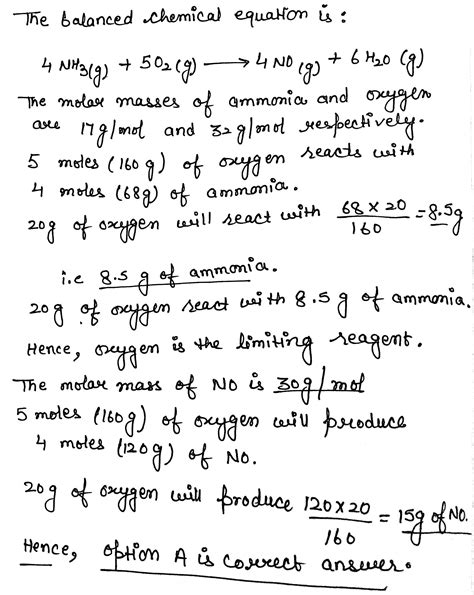 The balanced chemical equation is :
4 NH3(g) + 5O2(g) ⟶ 4 NO (g) + 6 H2O (g)
The molar masses of ammonia and oxygen
are 17g/mol and 32g/mol respectively.
5 moles (160g) of oxygen reacts with
4 moles (68g) of ammonia.
20g of oxygen will react with 68 × 20 / 160 = 8.5g
i.e 8.5 g of ammonia.
20g of oxygen react with 8.5 g of ammonia.
Hence, oxygen is the limiting reagent.
The molar mass of NO is 30g/mol
5 moles (160g) of oxygen will produce
4 moles (120g) of NO.
20g of oxygen will produce 120×20 / 160 = 15g of NO.
Hence, option A is correct answer.